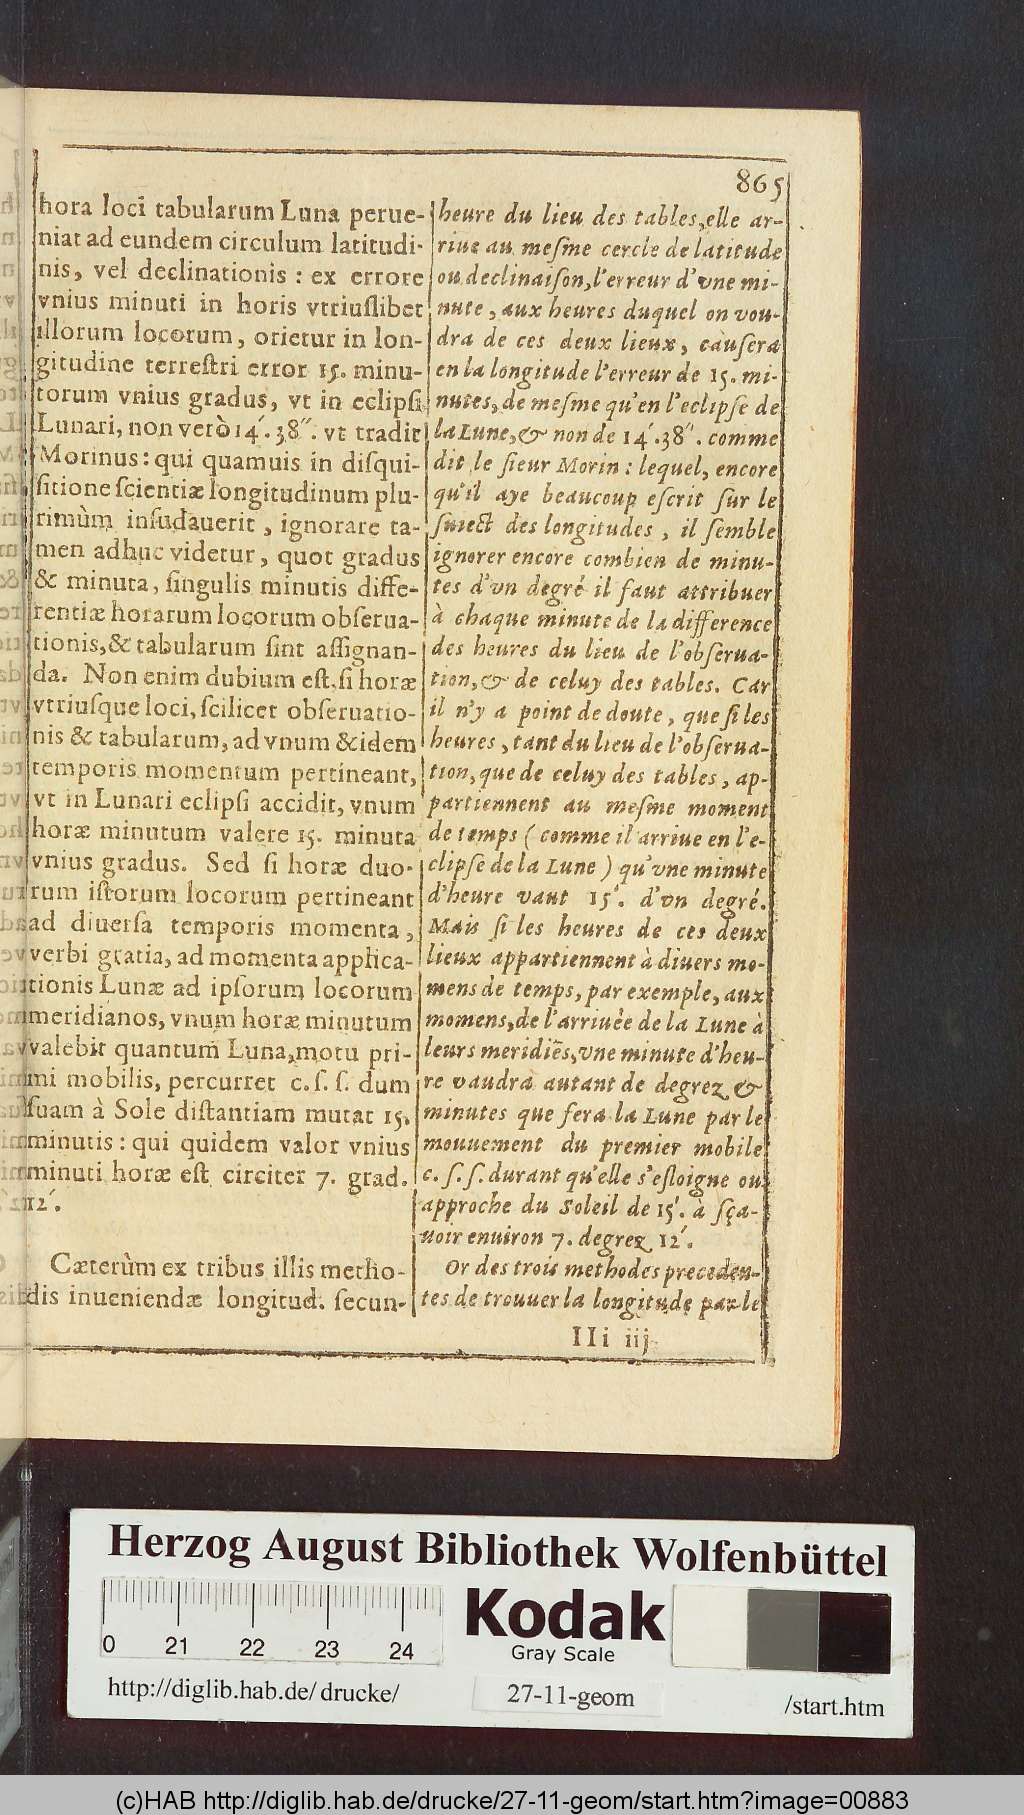 865
hora loci tabularum Luna perue-
niat ad eundem circulum latitudi-
nis, vel declinationis : ex errore
vnius minuti in horis vtriuſlibet
illorum locorum, orietur in lon-
gitudine terreſtri error 15. minu-
torum vnius gradus, vt in eclipſi
Lunari, non verò 14′. 38″. vt tradit
Morinus: qui quamuis in diſqui-
ſitione ſcientiæ longitudinum plu-
rimùm inſudauerit, ignorare ta-
men adhuc videtur, quot gradus
& minuta, ſingulis minutis diffe-
rentiæ horarum locorum obſerua-
tionis, & tabularum ſint aſſignan-
da. Non enim dubium eſt, ſi horæ
vtriuſque loci, ſcilicet obſeruatio-
nis & tabularum, ad vnum & idem
temporis momentum pertineant,
vt in Lunari eclipſi accidit, vnum
horæ minutum valere 15. minuta
vnius gradus. Sed ſi horæ duo-
rum iſtorum locorum pertineant
ad diuerſa temporis momenta,
verbi gratia, ad momenta applica-
tionis Lunæ ad ipſorum locorum
meridianos, vnum horæ minutum
valebit quantum Luna, motu pri-
mi mobilis, percurret c. ſ. ſ. dum
ſuam à Sole diſtantiam mutat 15.
minutis : qui quidem valor vnius
minuti horæ eſt circiter 7. grad.
12′.
Cæterùm ex tribus illis metho-
dis inueniendæ longitud. ſecun-
heure du lieu des tables, elle ar-
riue au meſme cercle de latitude
ou declinaiſon, l'erreur d'vne mi-
nute, aux heures duquel on vou-
dra de ces deux lieux, cauſera
en la longitude l'erreur de 15. mi-
nutes, de meſme qu'en l'eclipſe de
la Lune, & non de 14′. 38″. comme
dit le ſieur Morin : lequel, encore
qu'il aye beaucoup eſcrit ſur le
ſuiect des longitudes, il ſemble
ignorer encore combien de minu-
tes d'vn degré il faut attribuer
à chaque minute de la difference
des heures du lieu de l'obſerua-
tion, & de celuy des tables. Car
il n'y a point de doute, que ſi les
heures, tant du lieu de l'obſerua-
tion, que de celuy des tables, ap-
partiennent au meſme moment
de temps (comme il arriue en l'e-
clipſe de la Lune) qu'vne minute
d'heure vaut 15′. d'vn degré.
Mais ſi les heures de ces deux
lieux appartiennent à diuers mo-
mens de temps, par exemple, aux
momens, de l'arriuée de la Lune à
leurs meridiẽs, vne minute d'heu-
re vaudra autant de degrez &
minutes que fera la Lune par le
mouuement du premier mobile
c. ſ. ſ. durant qu'elle s'eſloigne ou
approche du Soleil de 15′. à ſça-
uoir enuiron 7. degrez 12′.
Or des trois methodes preceden-
tes de trouuer la longitude par le
IIi iij
Herzog August Bibliothek Wolfenbüttel
0 21 22 23 24
Kodak
Gray Scale
http://diglib.hab.de/drucke/
27-11-geom
/start.htm
(c)HAB http://diglib.hab.de/drucke/27-11-geom/start.htm?image=00883